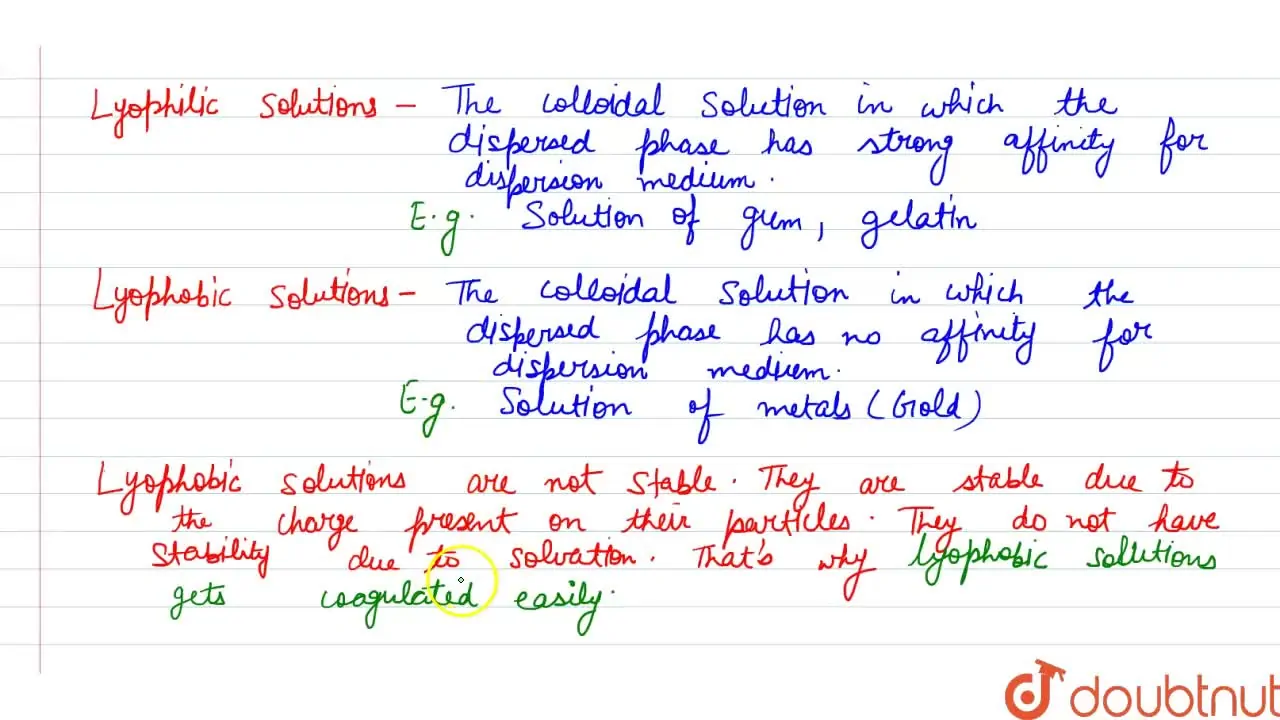 Lyophilic solutions - The colloidal solution in which the
dispersed phase has strong affinity for
dispersion medium.
E.g. Solution of gum, gelatin
Lyophobic solutions - The colloidal solution in which the
dispersed phase has no affinity for
dispersion medium.
E.g. Solution of metals (Gold)
Lyophobic solutions are not stable. They are stable due to
the charge present on their particles. They do not have
stability due to solvation. That's why lyophobic solutions
gets coagulated easily.
doubtnut